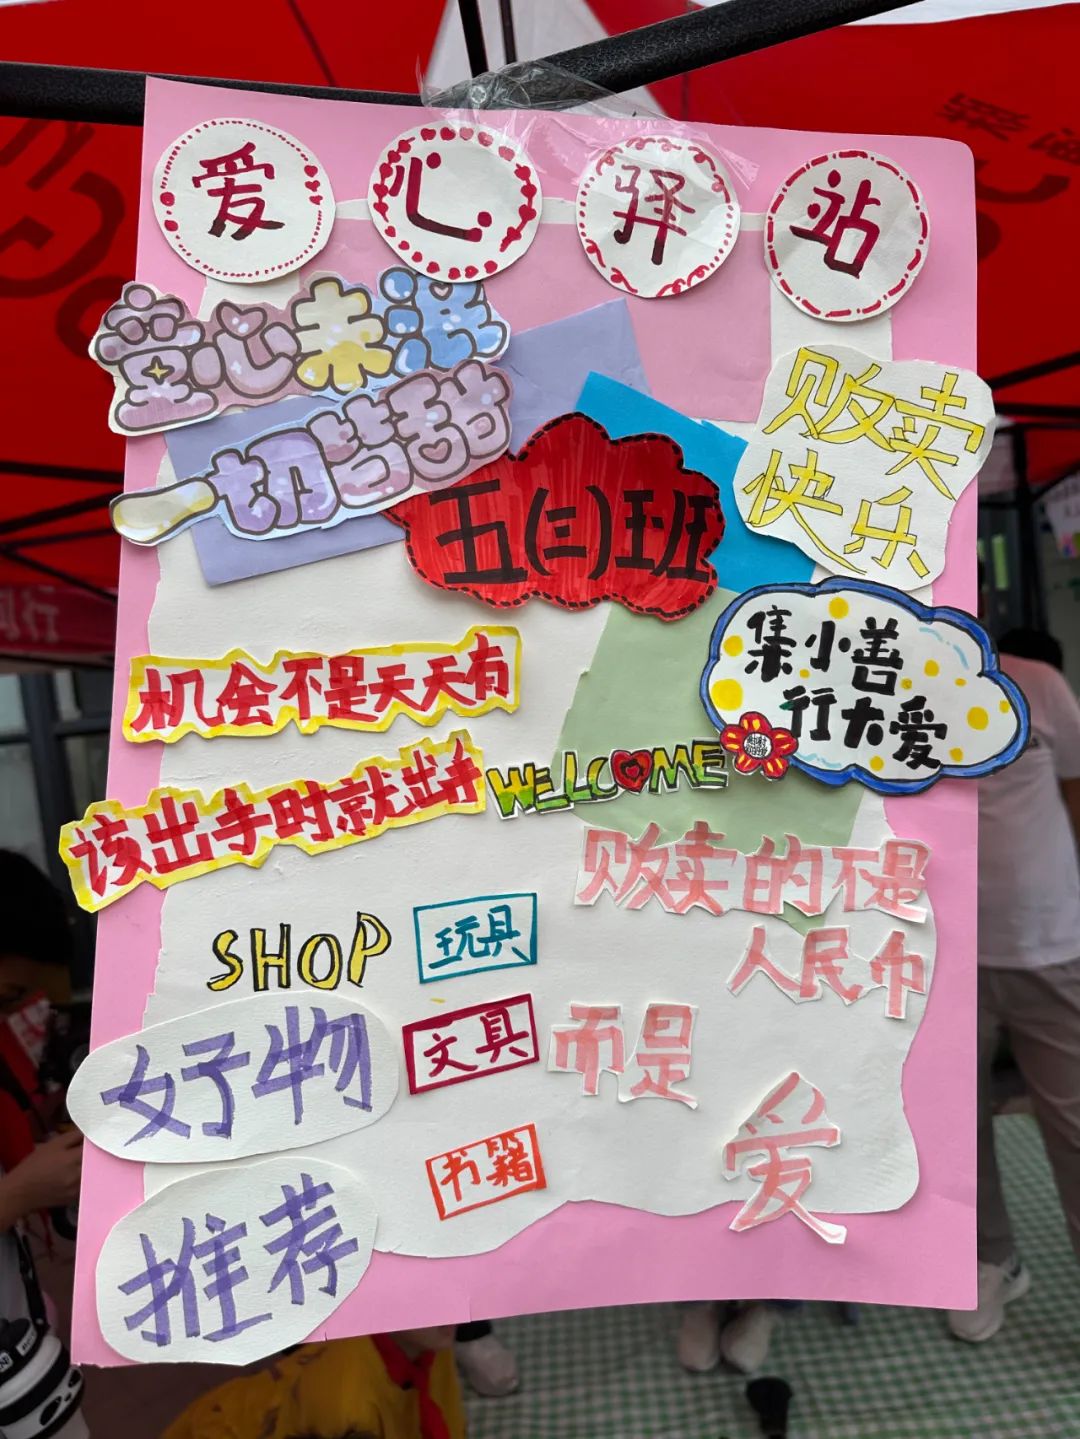 爱心驿站
童心来袭
一切皆甜
贩卖
快乐
五(三)班
集小善
行大爱
机会不是天天有
该出手时就出手
WELCOME
贩卖的不是
人民币
而是
爱
SHOP
玩具
文具
书籍
好物
推荐